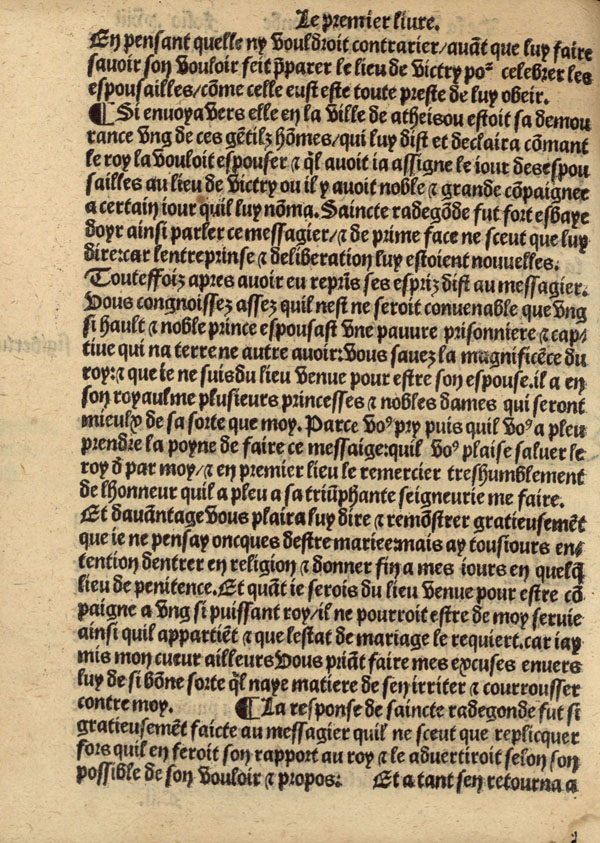 Le premier liure.
En pensant quelle ny vouldroit contrarier/auãt que luy faire
sauoir son vouloir feit p̃parer le lieu de Victry poᷣ celebrer les
espousailles/cõme celle eust este toute preste de luy obeir.
¶Si enuoya vers elle en la ville de atheisou estoit sa demou
rance vng de ces gẽtilz hõmes/qui luy dist et declaira cõmant
le roy la vouloit espouser ⁊ q̃l auoit ia assigne le iour des espou
sailles au lieu de Victry ou il y auoit noble ⁊ grande cõpaignee
a certain iour quil luy nõma. Saincte radegõde fut fort esbaye
doyr ainsi parler ce messagier/⁊ de prime face ne sceut que luy
dire:car lentreprinse ⁊ deliberation luy estoient nouuelles.
Touteffoiz apres auoir eu reprĩs ses espriz dist au messagier.
Vous congnoissez assez quil nest ne seroit conuenable que vng
si hault ⁊ noble prince espousast vne pauure prisonniere ⁊ cap-
tiue qui na terre ne autre auoir:vous sauez la magnificẽce du
roy:⁊ que ie ne suis du lieu venue pour estre son espouse. il a en
son royaulme plusieurs princesses ⁊ nobles dames qui seront
mieulx de sa sorte que moy. Parce voꝰ pry puis quil voꝰ a pleu
prendre la poyne de faire ce messaige:quil voꝰ plaise saluer le
roy d̾ par moy/⁊ en premier lieu le remercier treshumblement
de lhonneur quil a pleu a sa triũphante seigneurie me faire.
Et dauãntage vous plaira luy dire ⁊ remõstrer gratieusemẽt
que ie ne pensay oncques destre mariee:mais ay tousiours en-
tention dentrer en religion ⁊ donner fin a mes iours en quelq̃
lieu de penitence. Et quãt ie serois du lieu venue pour estre cõ
paigne a vng si puissant roy/il ne pourroit estre de moy seruie
ainsi quil appartiẽt ⁊ que lestat de mariage le requiert. car iay
mis mon cueur ailleurs vous priãt faire mes excuses enuers
luy de si bõne sorte q̃l naye matiere de sen irriter ⁊ courrousser
contre moy. ¶La response de saincte radegonde fut si
gratieusemẽt faicte au messagier quil ne sceut que replicquer
fors quil en feroit son rapport au roy ⁊ le aduertiroit selon son
possible de son vouloir ⁊ propos: Et a tant sen retourna a